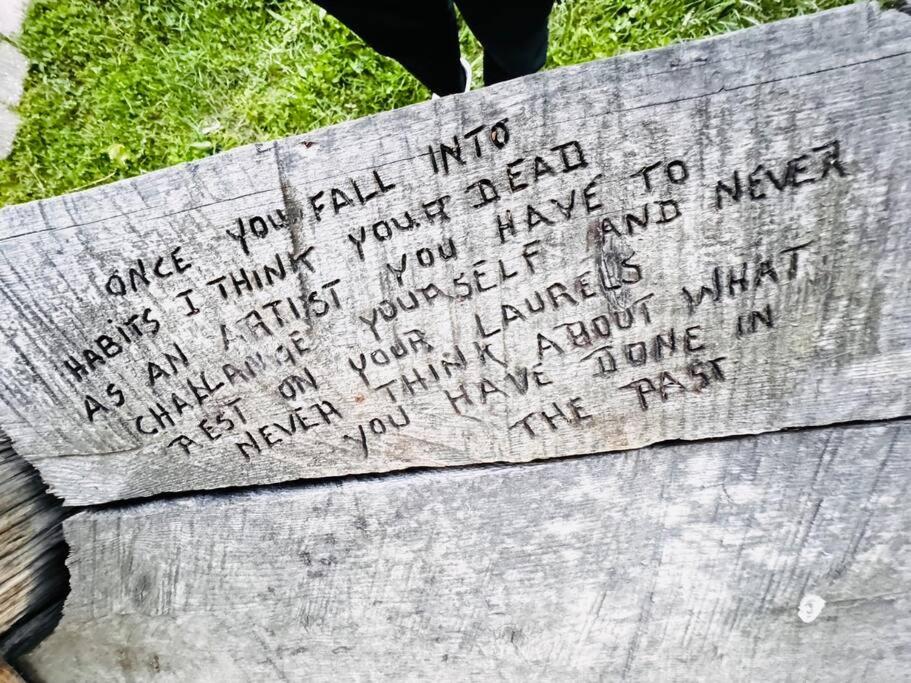 ONCE YOU FALL INTO
HABITS I THINK YOUR DEAD
AS AN ARTIST YOU HAVE TO
CHALLANGE YOURSELF AND NEVER
REST ON YOUR LAURELS
NEVER THINK ABOUT WHAT
YOU HAVE DONE IN
THE PAST